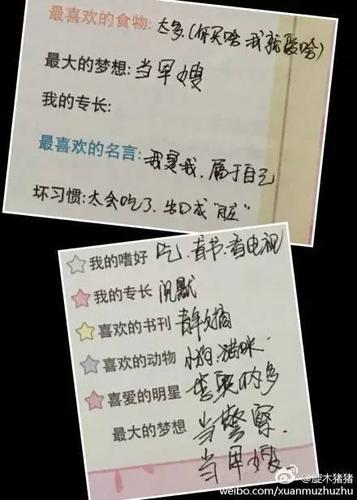 最喜欢的食物:太多.(你买啥我就爱啥)
最大的梦想:当军嫂
我的专长:
最喜欢的名言:我是我.属于自己
坏习惯:太会吃了.出口成"脏"
我的嗜好 吃.看书.看电视
我的专长 沉默
喜欢的书刊 青年文摘
喜欢的动物 小狗.猫咪.
喜爱的明星
最大的梦想 当警察.
当军嫂
@萱木猪猪
weibo.com/xuanmuzhuzhu